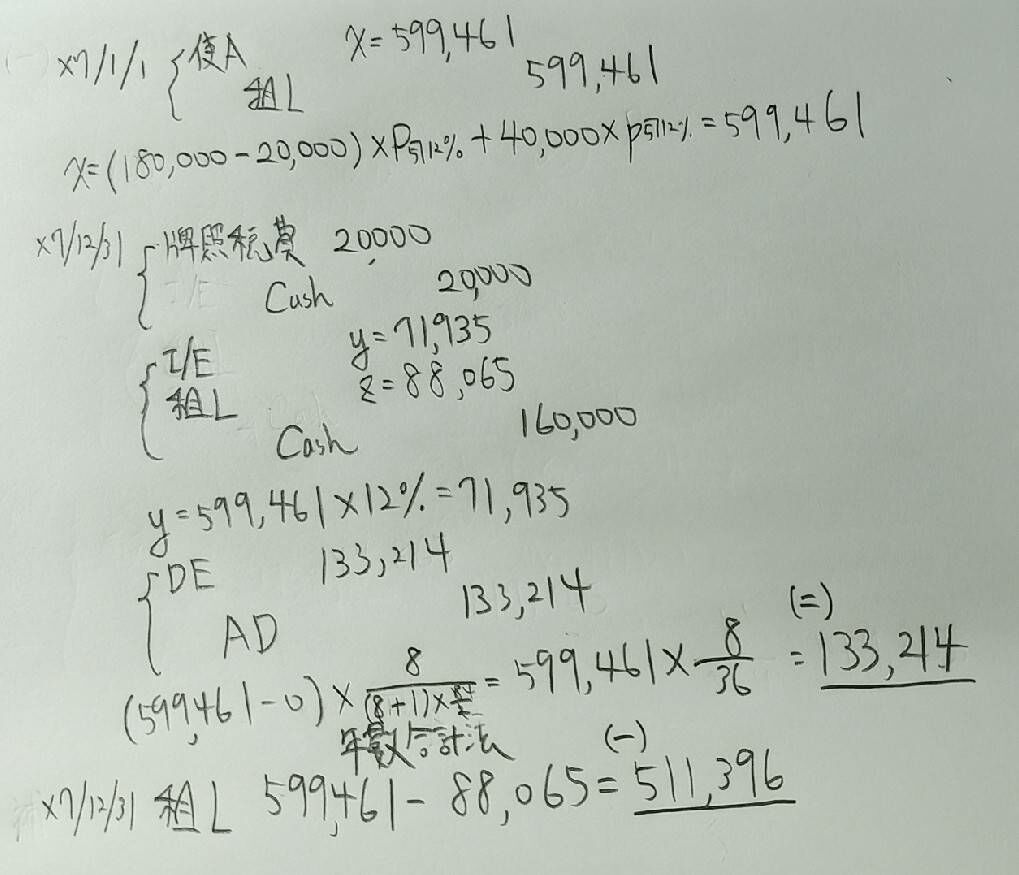 x7/1/1 使A x=599,461
租L 599,461
x=(180,000-20,000)×P5┐12%+40,000×p5┐12%=599,461
x7/12/31 牌照稅費 20,000
I/E Cash 20,000
I/E y=71,935
租L z=88,065
Cash 160,000
y=599,461×12%=71,935
DE 133,214
AD 133,214
(二)
(599,461-0)×8/(8+1)× =599,461×8/36=133,214
年數合計法
(一)
x7/12/31 租L 599,461-88,065=511,396